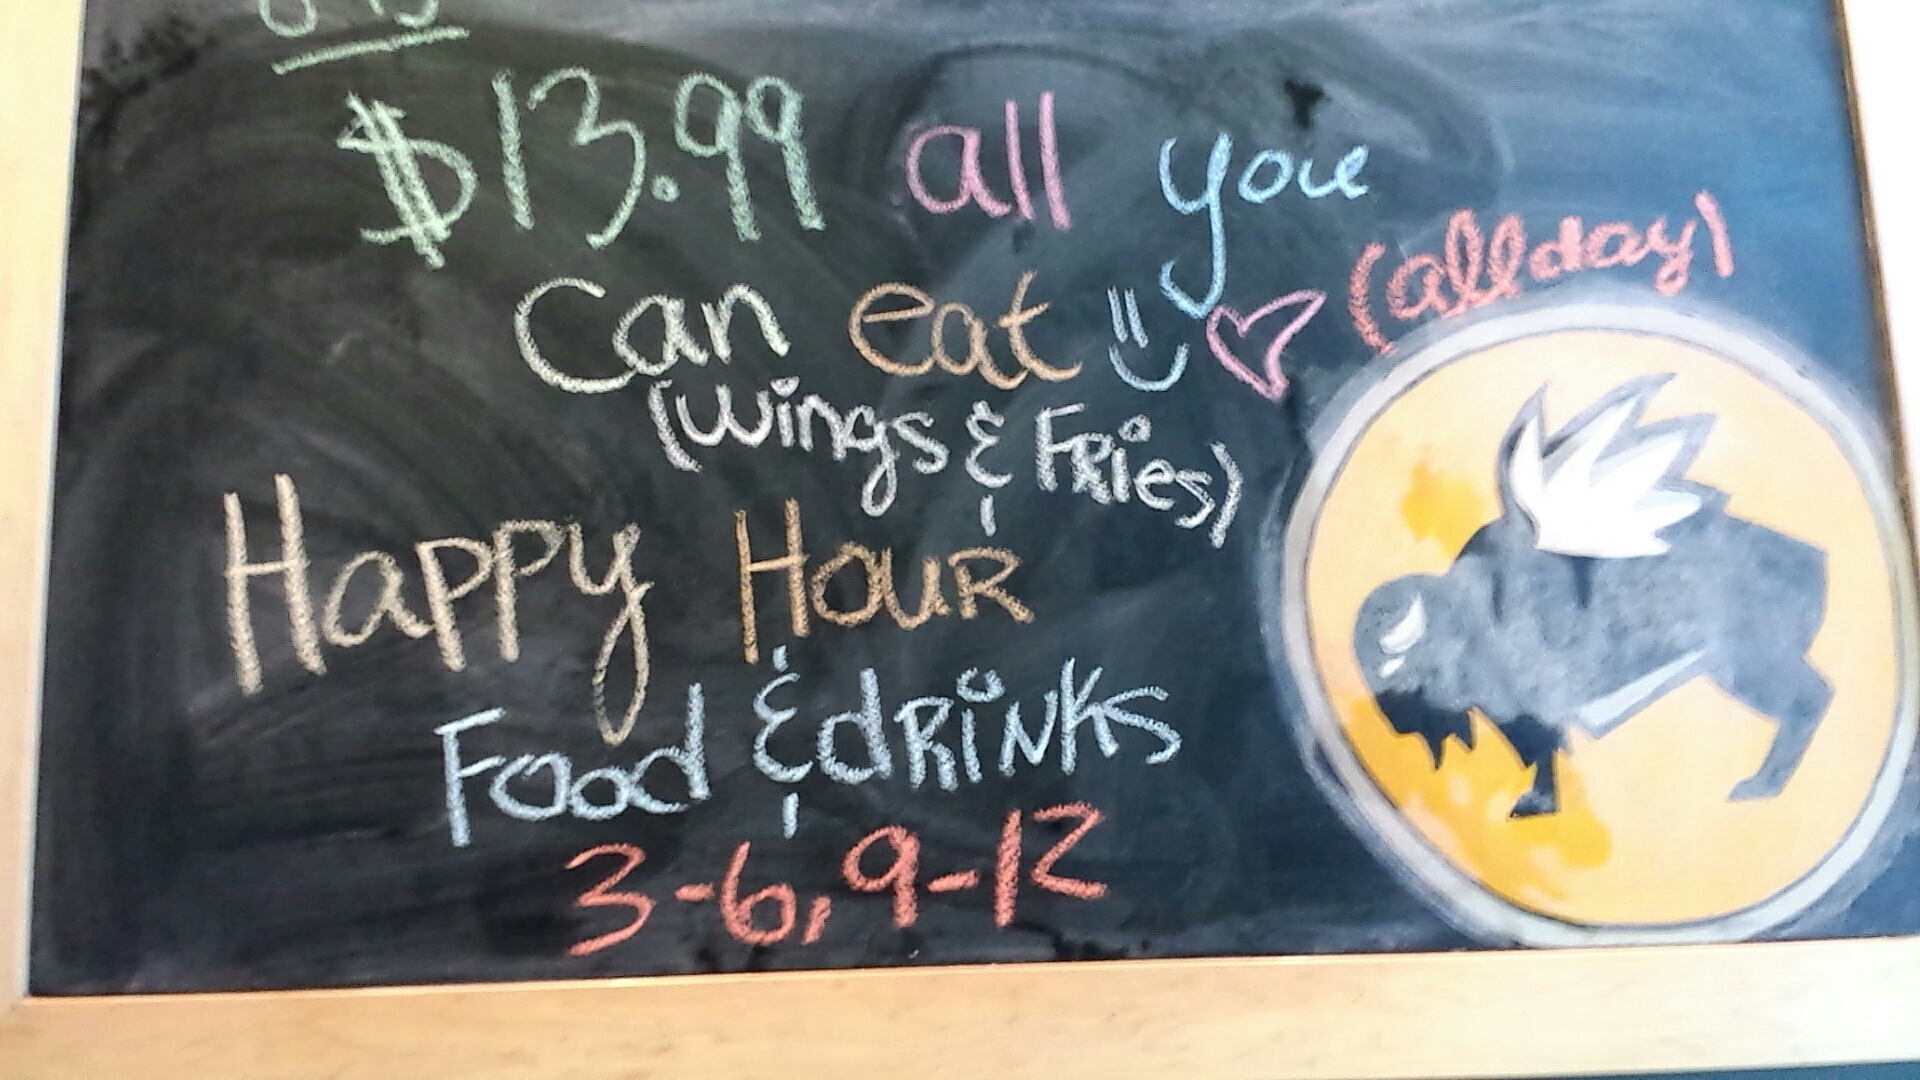 $13.99 all you
(all day)
Can eat
(Wings & FRies)
Happy HouR
Food & dRiNKs
3-6, 9-12